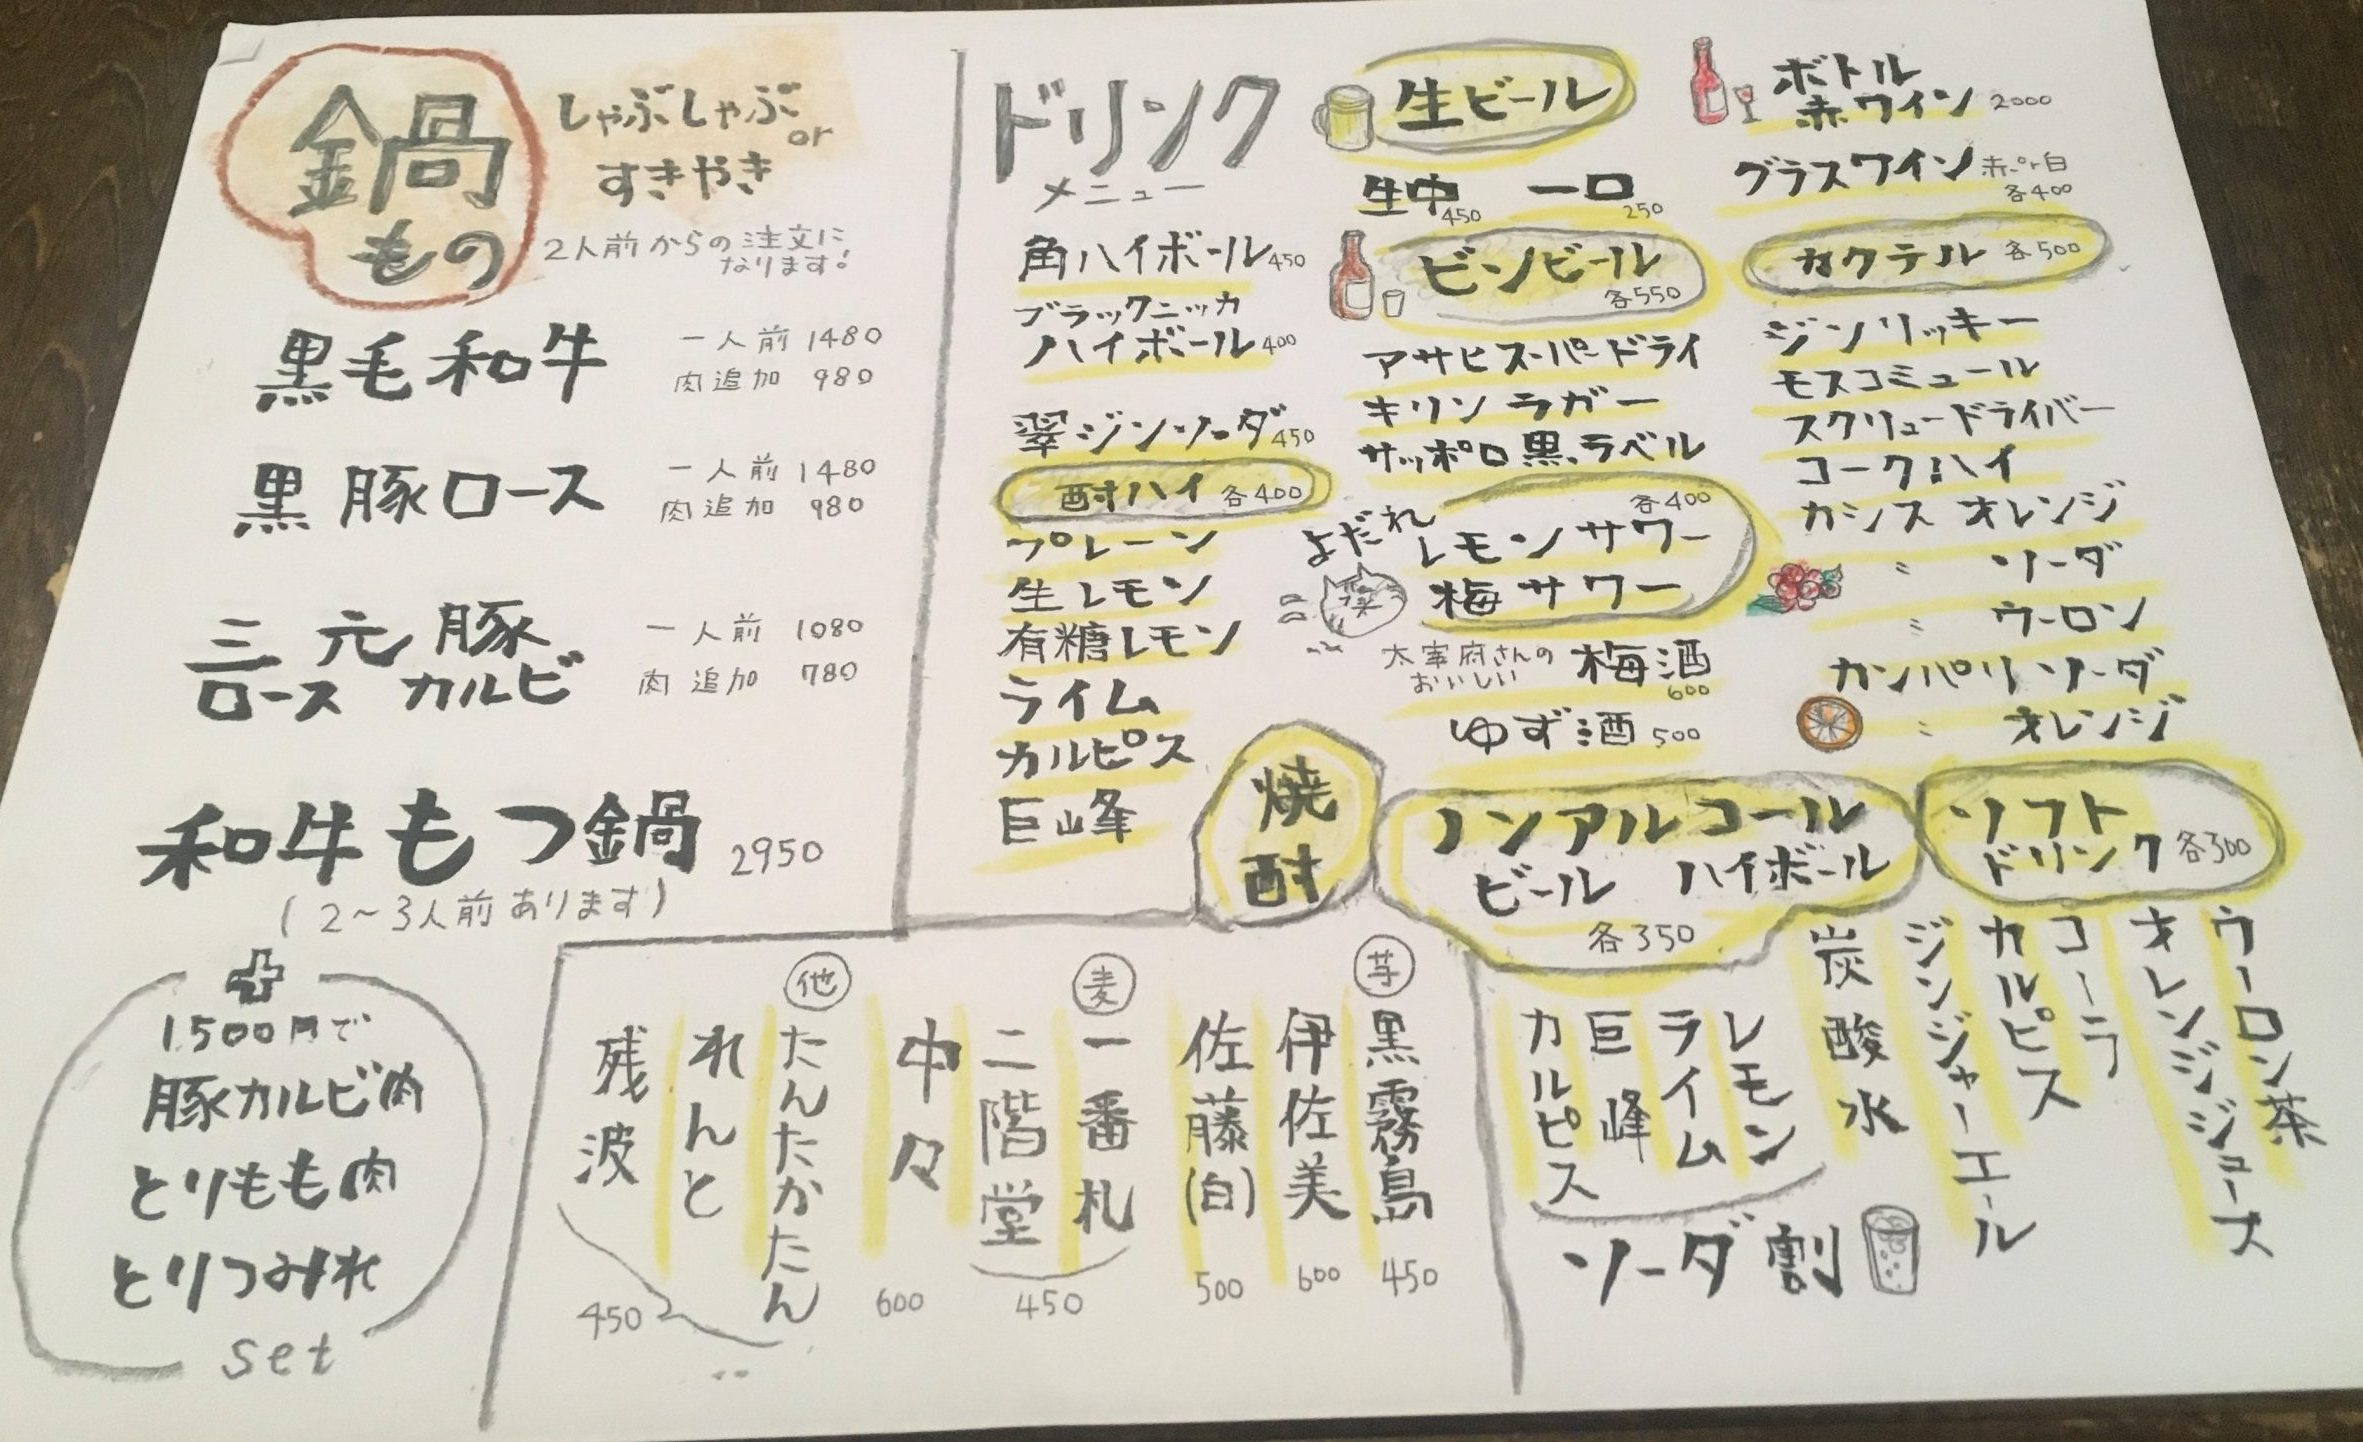 鍋もの
しゃぶしゃぶ
or
すきやき
2人前からの注文に
なります!
黒毛和牛
一人前 1480
肉追加 980
黒豚ロース
一人前 1480
肉追加 980
三元豚
ロース カルビ
一人前 1080
肉追加 780
和牛もつ鍋 2950
(2~3人前あります)
1500円で
豚カルビ肉
とりもも肉
とりつみれ
set
ドリンク
メニュー
角ハイボール 450
ブラックニッカ
ハイボール 400
翠ジンソーダ 450
酎ハイ 各400
プレーン
生レモン
有糖レモン
ライム
カルピス
巨峰
生ビール
生中 450
一口 250
ビンビール
各550
アサヒスーパードライ
キリンラガー
サッポロ黒ラベル
各400
よだれ
レモンサワー
梅サワー
太宰府さんの
おいしい
梅酒
600
ゆず酒 500
ボトル
赤ワイン 2000
グラスワイン 赤or白
各400
カクテル 各500
ジンリッキー
モスコミュール
スクリュードライバー
コークハイ
カシス オレンジ
〃 ソーダ
〃 ウーロン
カンパリ ソーダ
〃 オレンジ
焼酎
芋
黒霧島
450
伊佐美
600
佐藤(白)
500
麦
一番札
二階堂
450
中々
600
他
たんたかたん
れんと
残波
450
ノンアルコール
ビール ハイボール
各350
レモン
ライム
巨峰
カルピス
ソーダ割
ソフト
ドリンク 各300
ウーロン茶
オレンジジュース
コーラ
カルピス
ジンジャーエール
炭酸水